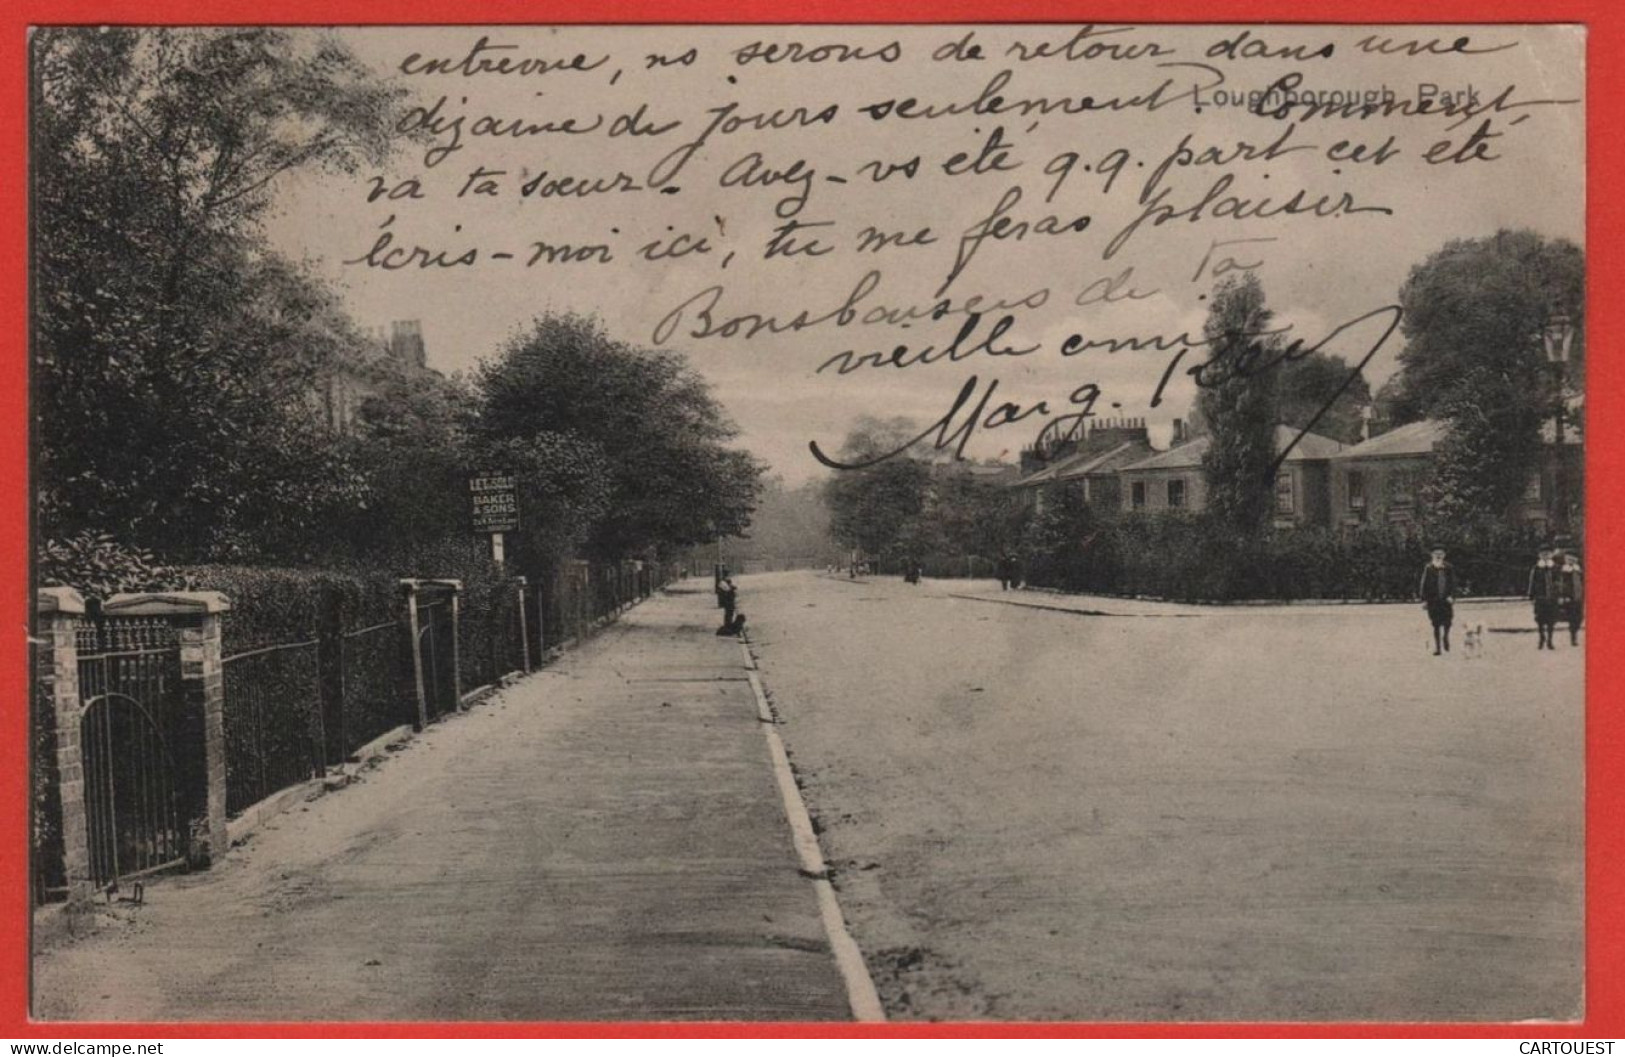 entrevue, ns serons de retour dans une
Loughborough Park
dizaine de jours seulement. Comment
va ta soeur. Avez-vs été q.q. part cet été
écris-moi ici, tu me feras plaisir
Bons baisers de ta
vieille amie
Marg.
LET SOLD
BAKER
& SONS
delcampe.net
CARTOUEST